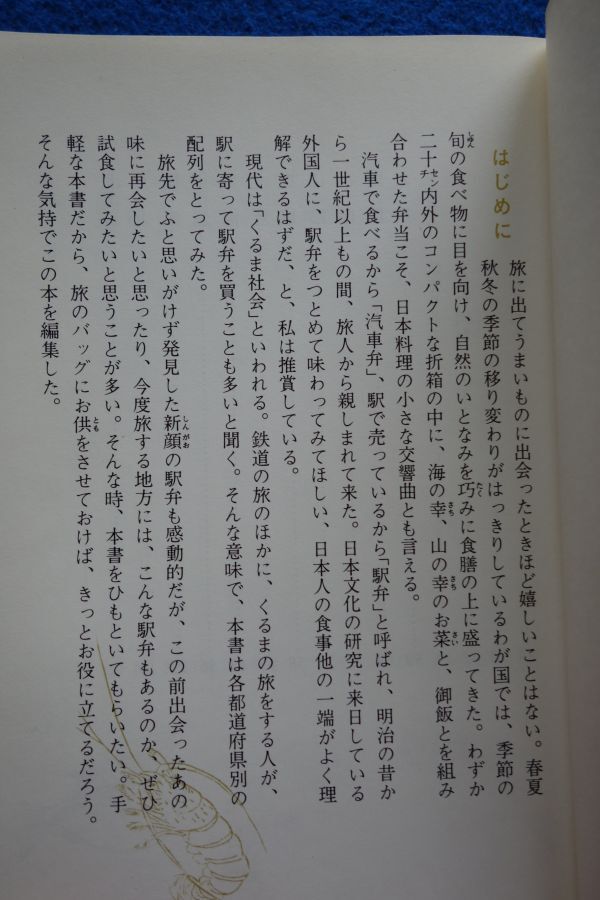 はじめに
旅に出てうまいものに出会ったときほど嬉しいことはない。春夏
秋冬の季節の移り変わりがはっきりしているわが国では、季節の
旬の食べ物に目を向け、自然のいとなみを巧みに食膳の上に盛ってきた。わずか
二十センチ内外のコンパクトな折箱の中に、海の幸、山の幸のお菜と、御飯とを組み
合わせた弁当こそ、日本料理の小さな交響曲とも言える。
汽車で食べるから「汽車弁」、駅で売っているから「駅弁」と呼ばれ、明治の昔か
ら一世紀以上もの間、旅人から親しまれて来た。日本文化の研究に来日している
外国人に、駅弁をつとめて味わってみてほしい、日本人の食事他の一端がよく理
解できるはずだ、と、私は推賞している。
現代は「くるま社会」といわれる。鉄道の旅のほかに、くるまの旅をする人が、
駅に寄って駅弁を買うことも多いと聞く。そんな意味で、本書は各都道府県別の
配列をとってみた。
旅先でふと思いがけず発見した新顔の駅弁も感動的だが、この前出会ったあの
味に再会したいと思ったり、今度旅する地方には、こんな駅弁もあるのか、ぜひ
試食してみたいと思うことが多い。そんな時、本書をひもといてもらいたい。手
軽な本書だから、旅のバッグにお供をさせておけば、きっとお役に立てるだろう。
そんな気持でこの本を編集した。